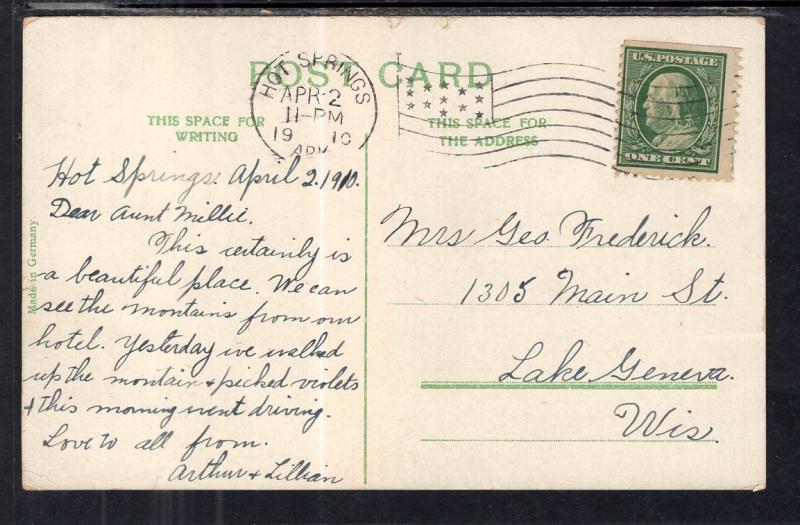 POST CARD
HOT SPRINGS
APR 2
11-PM
1910
ARK.
U.S. POSTAGE
ONE CENT
THIS SPACE FOR
WRITING
THIS SPACE FOR
THE ADDRESS
Made in Germany
Hot Springs. April 2. 1910.
Dear Aunt Millie.
This certainly is
a beautiful place. We can
see the montains from our
hotel. Yesterday we walked
up the montain & picked violets
& this morning went driving.
Love to all from.
Arthur & Lillian
Mrs Geo. Frederick.
1305 Main St.
Lake Geneva.
Wis.